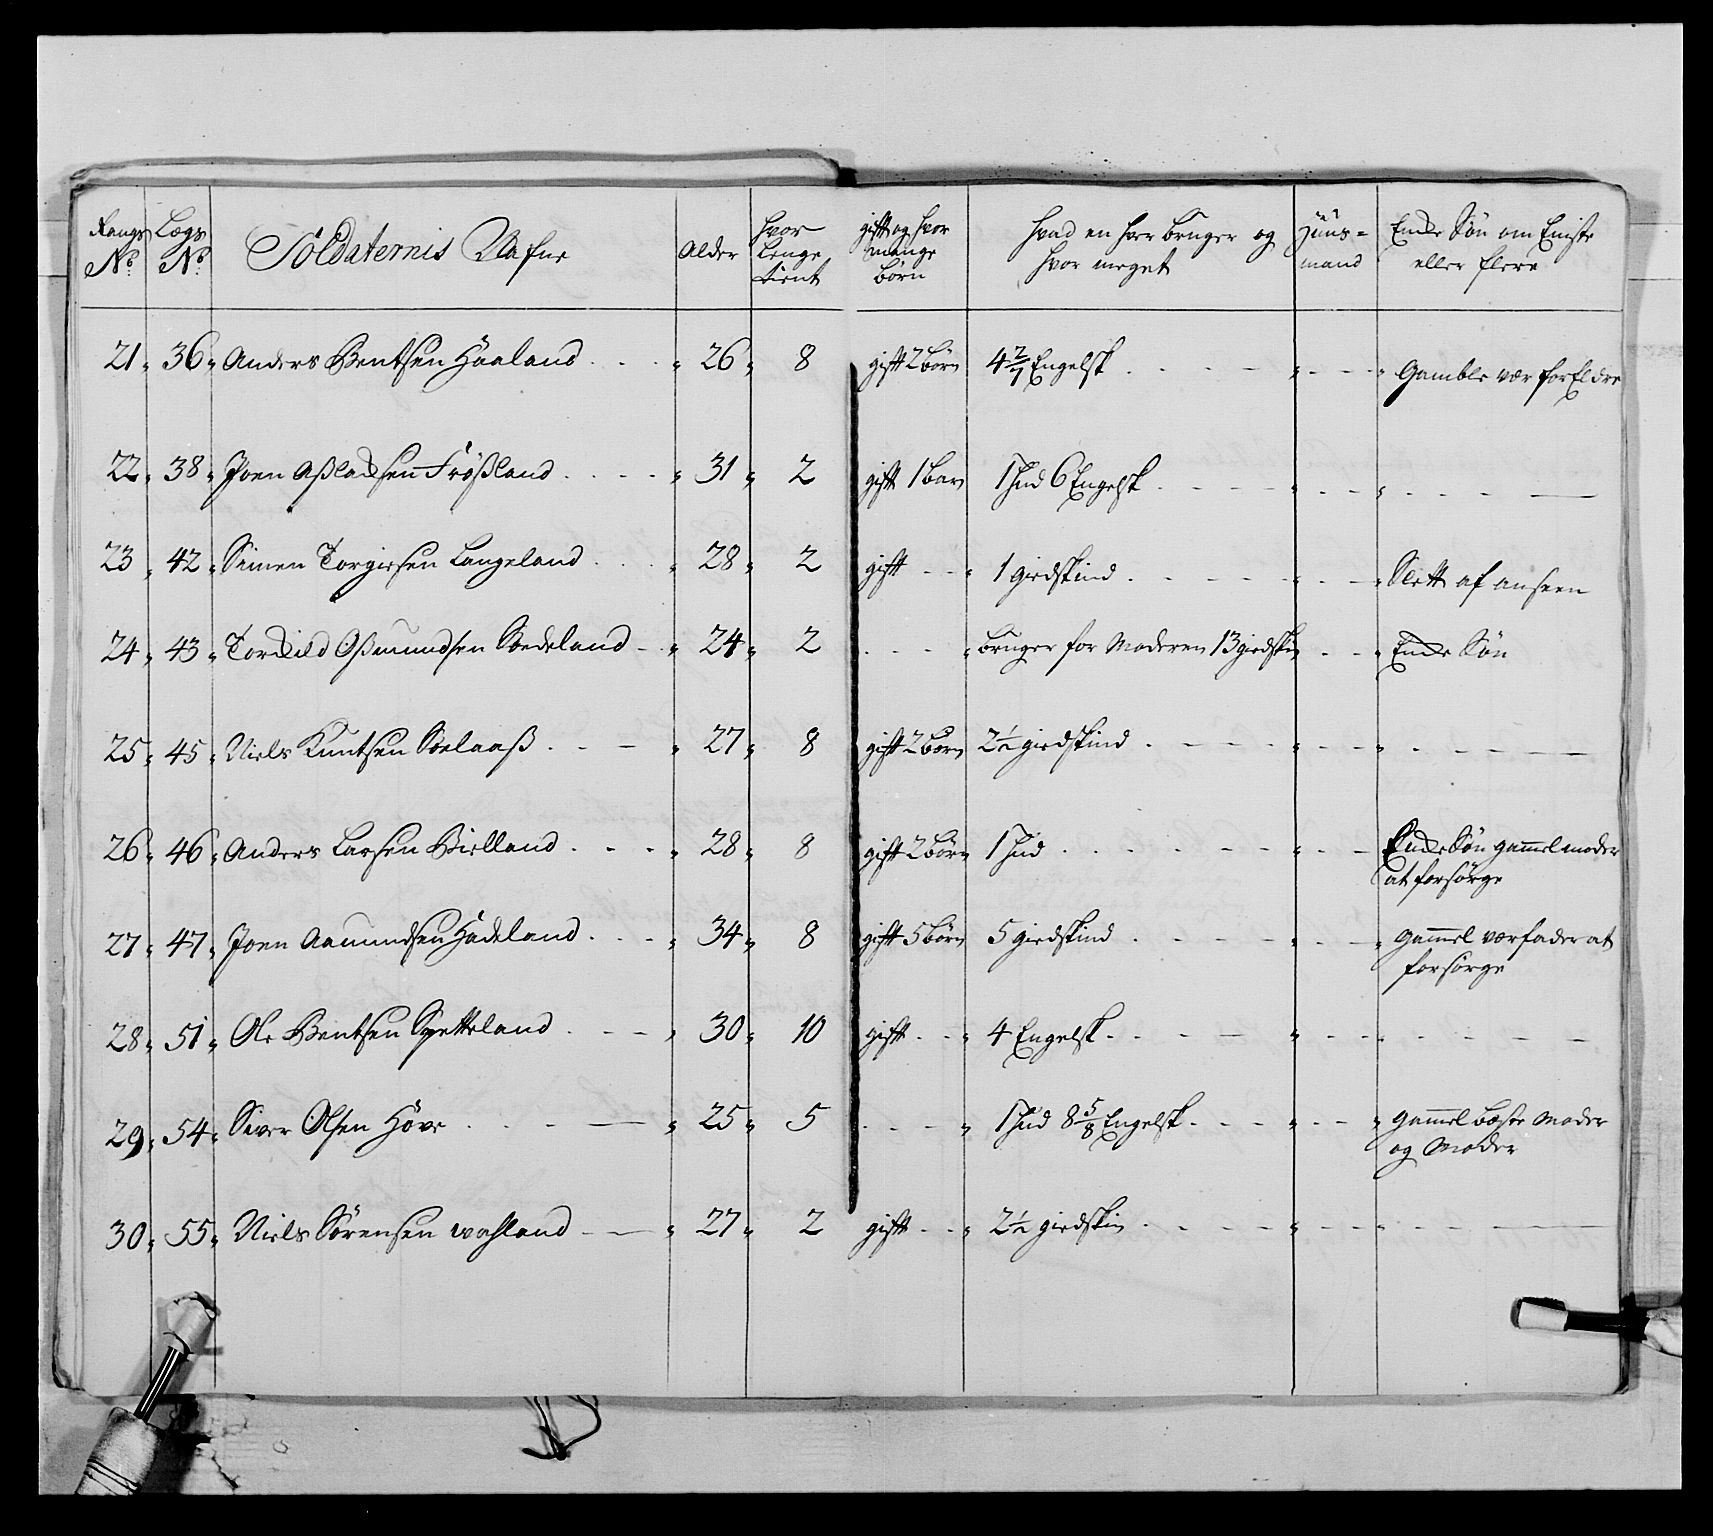 Rangs No. Lægs No. Soldaternis Nafne Alder hvor lenge tient gift og hvor mange börn hvad en hver bruger og hvor meget Huus-mand Eniste Sön om Eniste eller flere
21 36 Anders Bentsen Haaland 26 8 gift 2 börn 4 2/7 Engelsk Gamble værforEldre
22 38 Joen Aßlacksen Frößland 31 2 gift 1 barn 1 Hud 6 Engelsk
23 42 Simen Torgiersen Langeland 28 2 gift 1 giedskind Slett af anseen
24 43 Torkild Oßmundsen Stedeland 24 2 bruger for Moderen 13 giedskin Eneste Sön
25 45 Niels Knutsen Stelaaß 27 8 gift 2 börn 2½ giedskind
26 46 Anders Larsen Bielland 28 8 gift 2 börn 1 Hud Eneste Sön gammel moder
at forsörge
27 47 Joen Aamundsen Hadeland 34 8 gift 5 börn 5 giedskind gammel værfader at
forsörge
28 51 Ole Bentsen Spetteland 30 10 gift 4 Engelsk
29 54 Siver Olsen Höye 25 5 1 Hud 8 5/8 Engelsk gammel beste Moder
og Moder
30 55 Niels Sörensen Waßland 27 2 gift 2½ giedskin